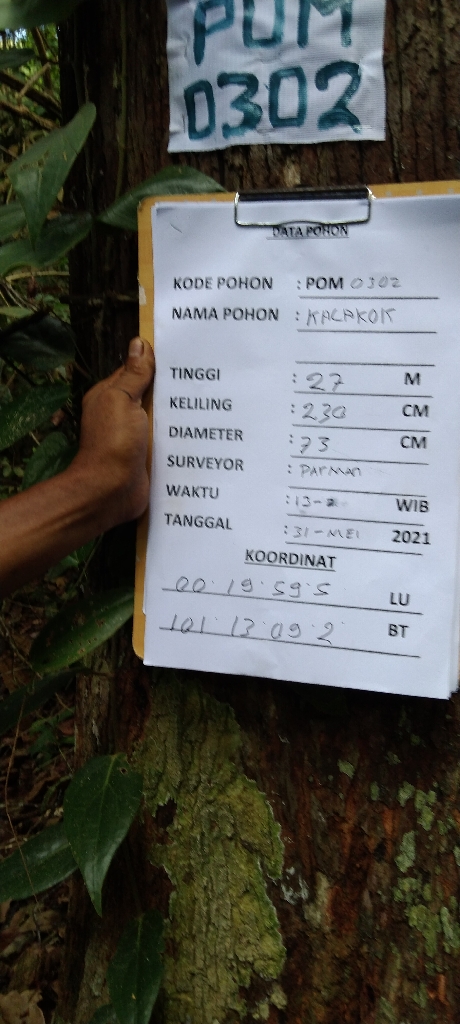 POM
0302
DATA POHON
KODE POHON : POM 0302
NAMA POHON : KALAKOK
TINGGI : 27 M
KELILING : 230 CM
DIAMETER : 73 CM
SURVEYOR : PARMAN
WAKTU : 13- WIB
TANGGAL : 31-MEI 2021
KOORDINAT
00.19.59.5 LU
101.13.09.2 BT